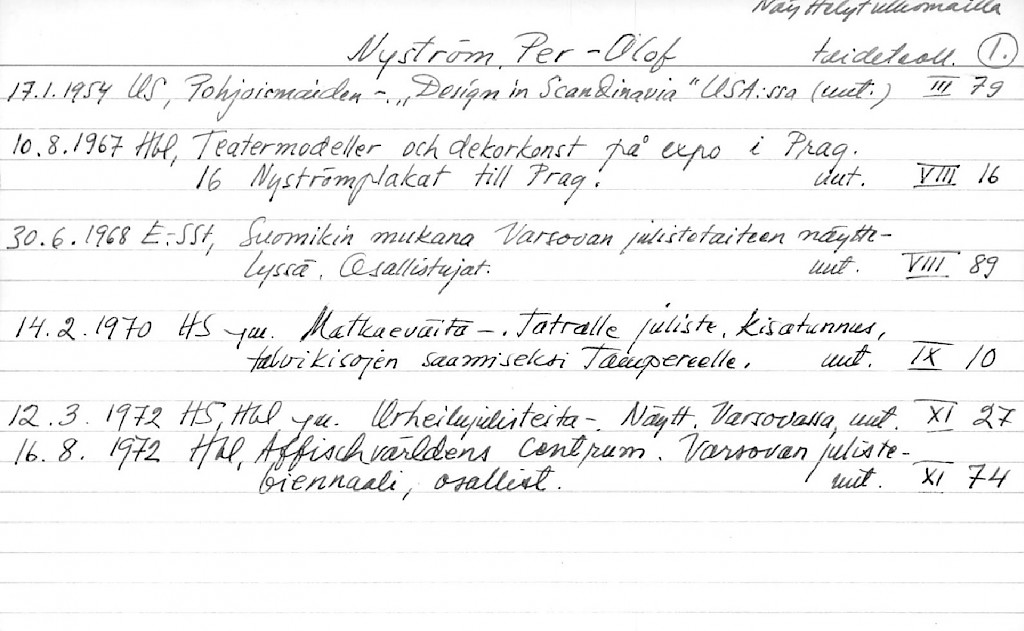 Näyttelyt ulkomailla
Nyström, Per-Olof taideteoll. 1.
17.1.1954 US, Pohjoismaiden -. "Design in Scandinavia" USA:ssa (uut.) III 79
10.8.1967 Hbl, Teatermodeller och dekorkonst på expo i Prag.
16 Nyströmplakat till Prag. uut. VIII 16
30.6.1968 E:-SSt, Suomikin mukana Varsovan julistetaiteen näytte-
lyssä. Osallistujat. uut. VIII 89
14.2.1970 HS ym. Matkaeväitä -. Tatralle juliste, kisatunnus,
talvikisojen saamiseksi Tampereelle. uut. IX 10
12.3.1972 HS, Hbl ym. Urheilujulisteita -. Näytt. Varsovassa, uut. XI 27
16.8.1972 Hbl, Affischvärldens centrum. Varsovan juliste-
biennaali, osallist. uut. XI 74